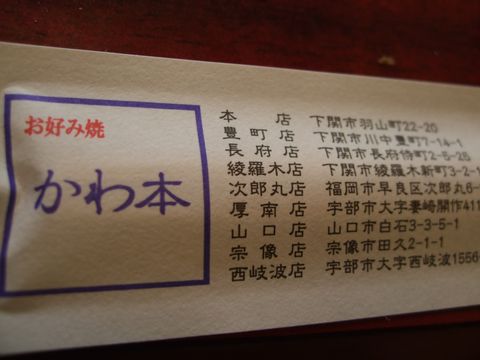 お好み焼
かわ本
本店 下関市羽山町22-20
豊町店 下関市川中豊町7-14-1
長府店 下関市長府侍町2-5-25
綾羅木店 下関市綾羅木新町3-2-1
次郎丸店 福岡市早良区次郎丸6-
厚南店 宇部市大字妻崎開作411
山口店 山口市白石3-3-5-1
宗像店 宗像市田久2-1-1
西岐波店 宇部市大字西岐波1556-